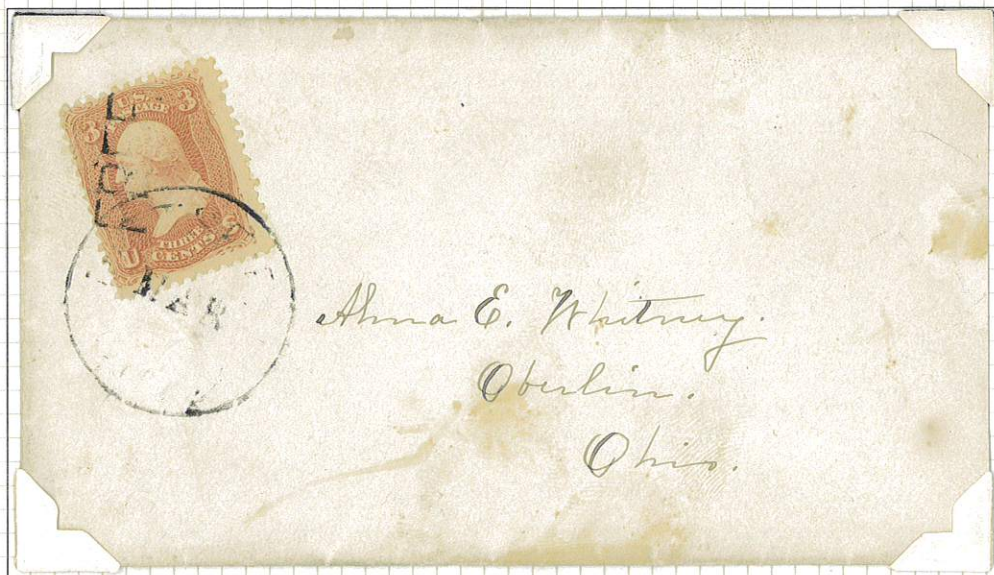 3 U.S. POSTAGE 3
U THREE CENTS S
MAR
Alma E. Whitney.
Oberlin.
Ohio.